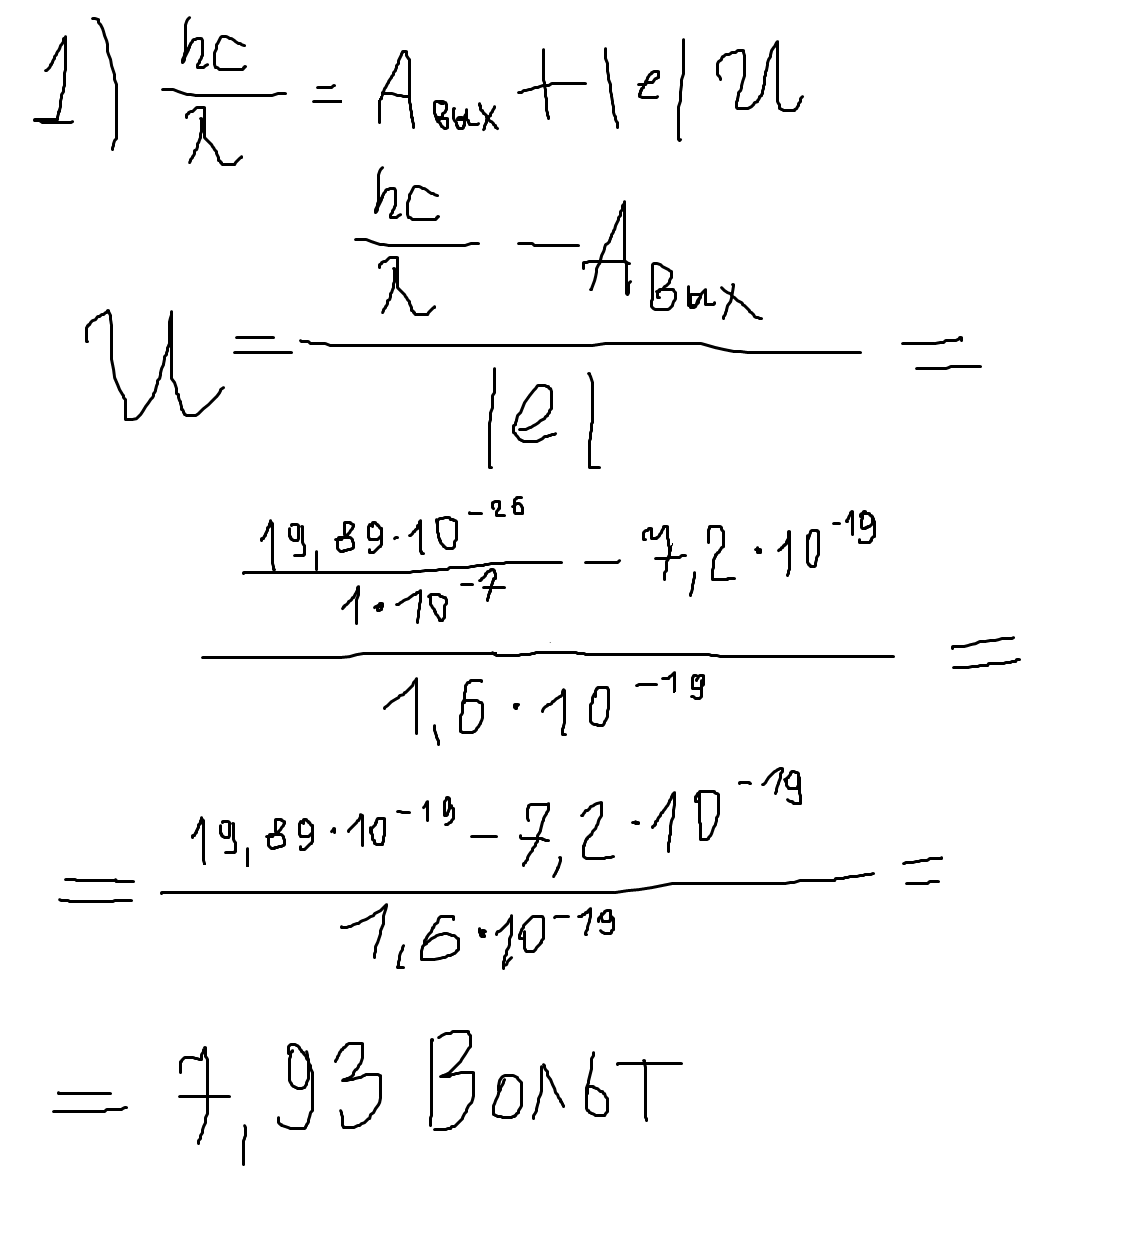 1) hc/λ = Aвых + |e| U
U = (hc/λ − Aвых)/|e| =
(19,89·10^-26/1·10^-7 − 7,2·10^-19)/1,6·10^-19 =
= (19,89·10^-19 − 7,2·10^-19)/1,6·10^-19 =
= 7,93 Вольт